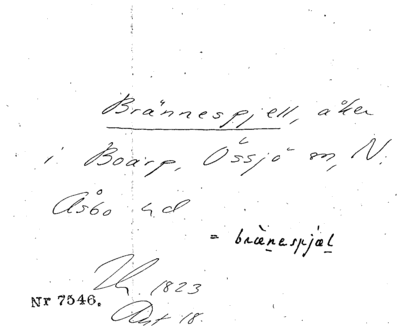 Brännespjell, åker
i Boarp, Össjö sn, N.
Åsbo hd
= bränespjäl
1823
Nr 7546.
18.